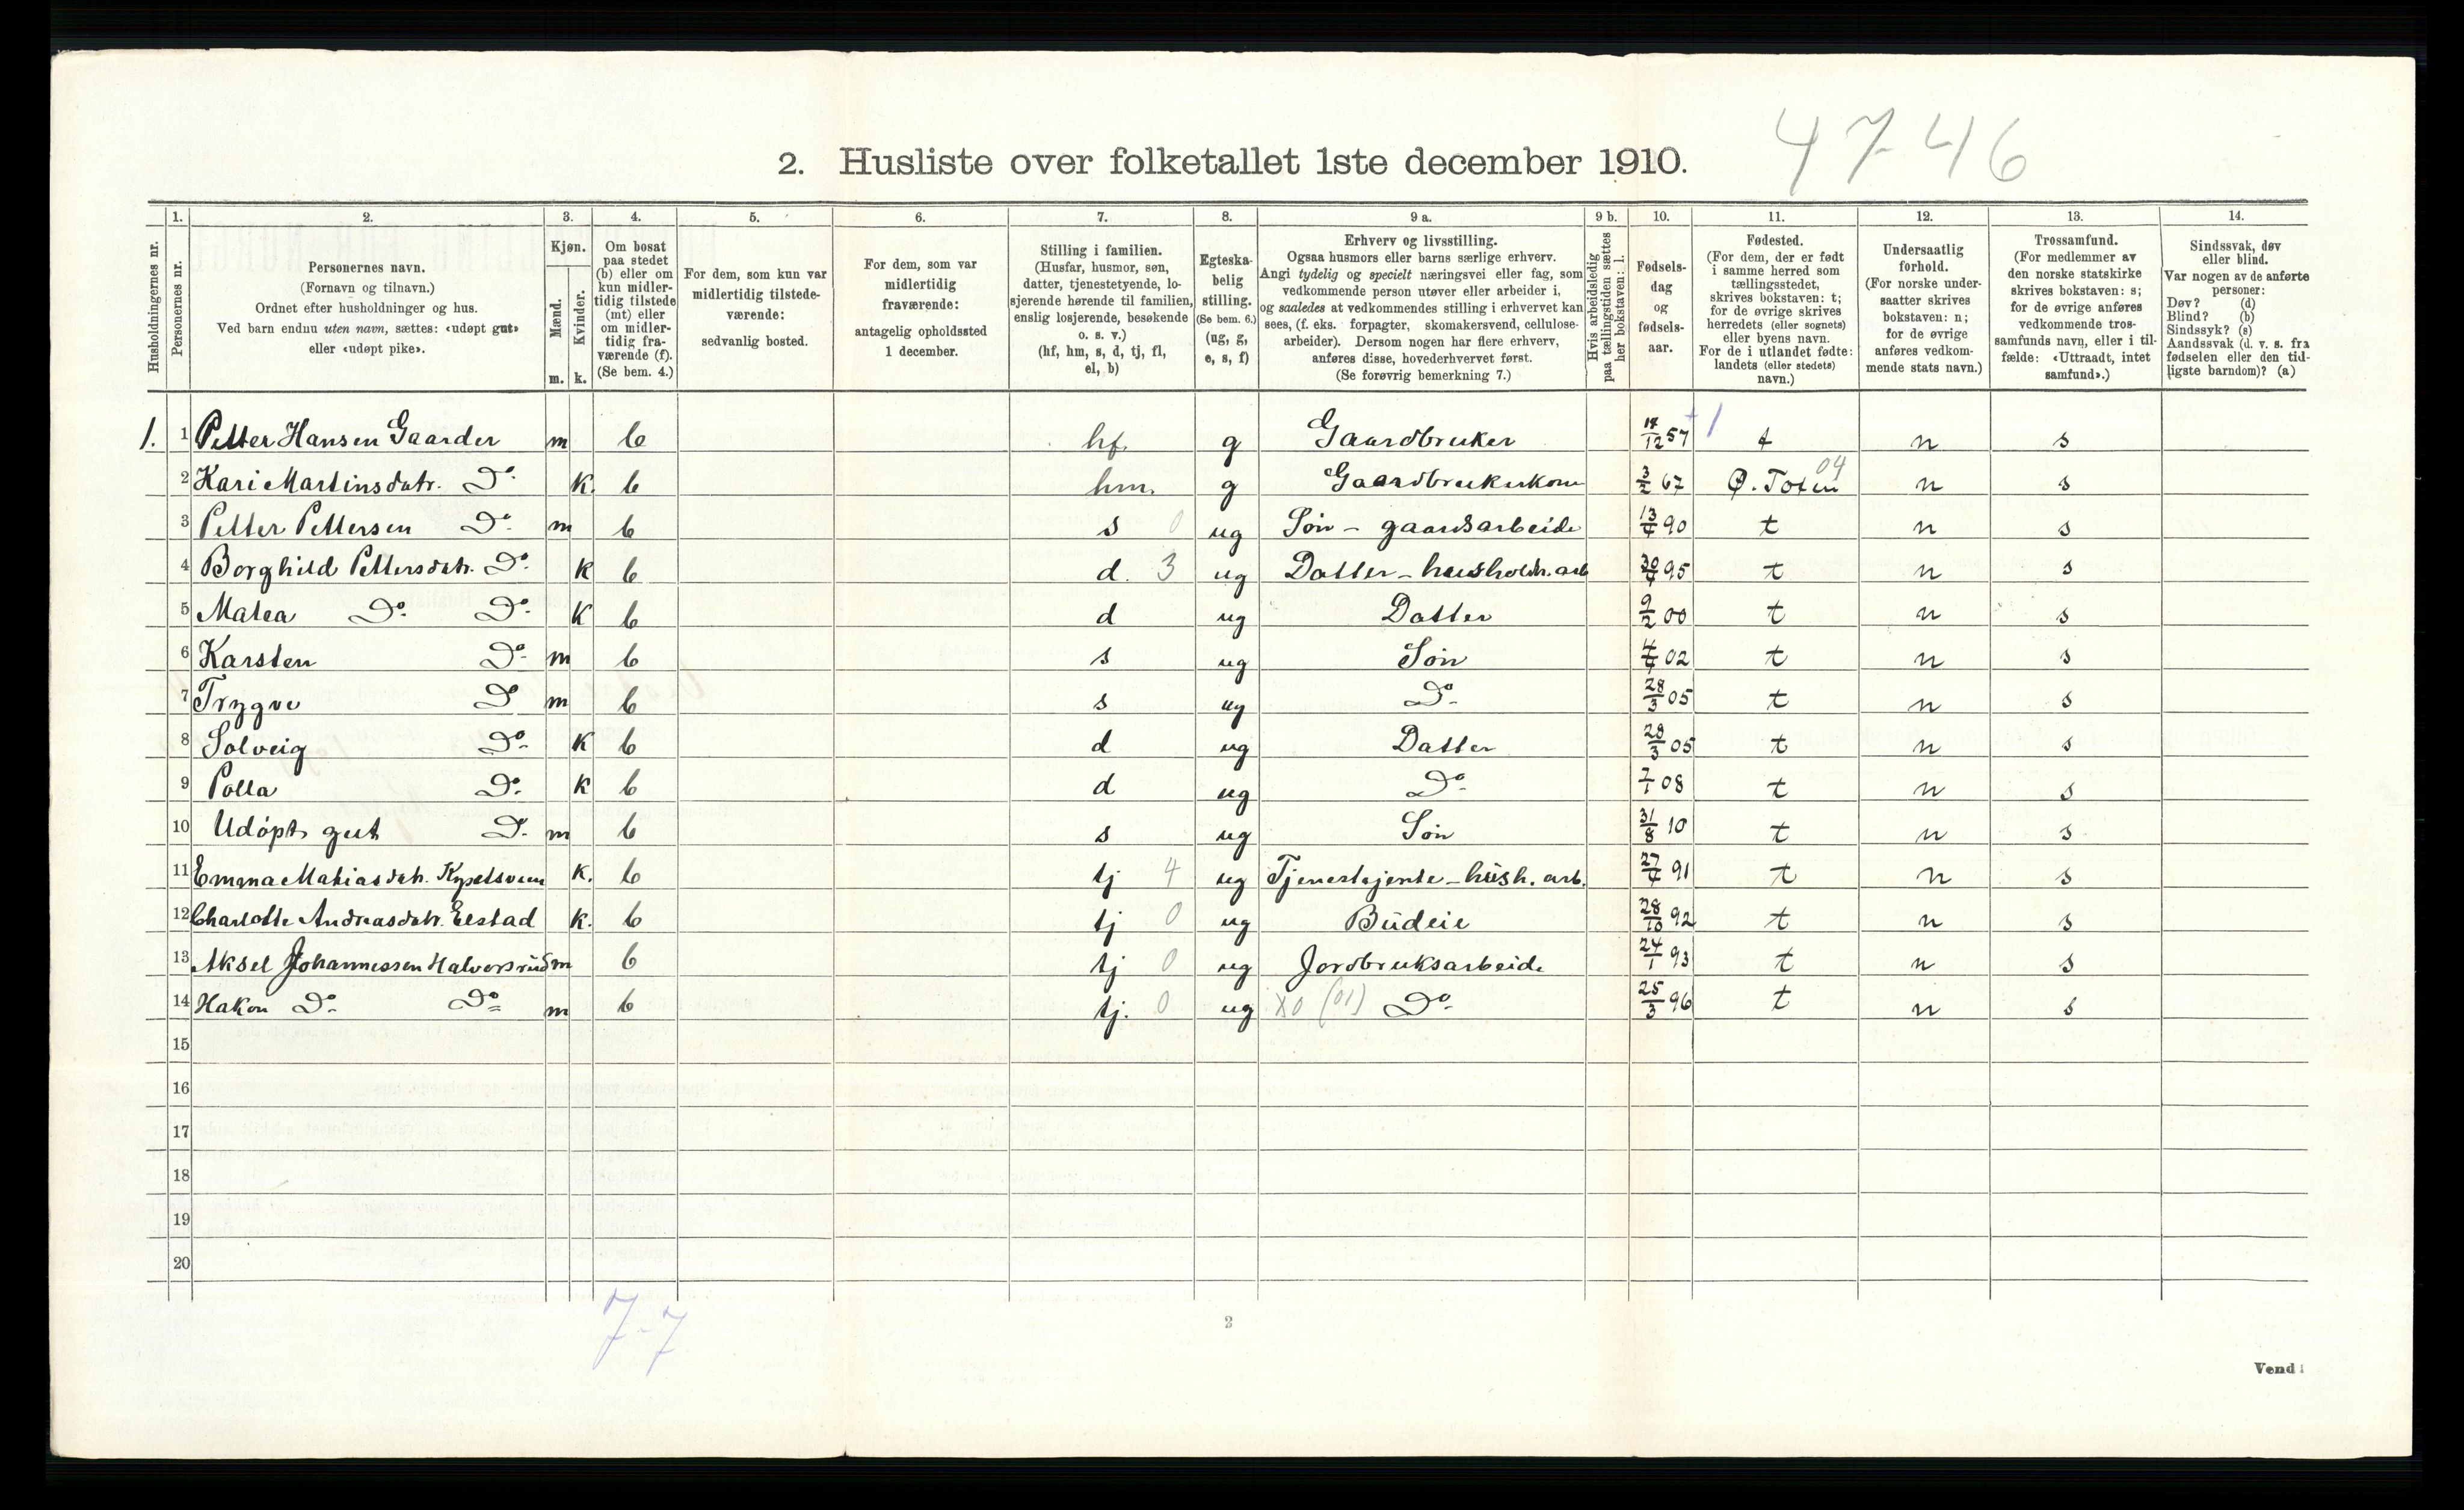 47-46
2. Husliste over folketallet 1ste december 1910.
1. 2. 3. 4. 5. 6. 7. 8. 9 a. 9 b. 10. 11. 12. 13. 14.
Husholdningernes nr.
Personernes nr.
Personernes navn.
(Fornavn og tilnavn.)
Ordnet efter husholdninger og hus.
Ved barn endnu uten navn, sættes: «udøpt gut»
eller «udøpt pike».
Kjøn.
Mænd.
m.
Kvinder.
k.
Om bosat
paa stedet
(b) eller om
kun midler-
tidig tilstede
(mt) eller
om midler-
tidig fra-
værende (f).
(Se bem. 4.)
For dem, som kun var
midlertidig tilstede-
værende:
sedvanlig bosted.
For dem, som var
midlertidig
fraværende:
antagelig opholdssted
1 december.
Stilling i familien.
(Husfar, husmor, søn,
datter, tjenestetyende, lo-
sjerende hørende til familien,
enslig losjerende, besøkende
o. s. v.)
(hf, hm, s, d, tj, fl,
el, b)
Egteska-
belig
stilling.
(Se bem. 6.)
(ug, g,
e, s, f)
Erhverv og livsstilling.
Ogsaa husmors eller barns særlige erhverv.
Angi tydelig og specielt næringsvei eller fag, som
vedkommende person utøver eller arbeider i,
og saaledes at vedkommendes stilling i erhvervet kan
sees, (f. eks. forpagter, skomakersvend, cellulose-
arbeider). Dersom nogen har flere erhverv,
anføres disse, hovederhvervet først.
(Se forøvrig bemerkning 7.)
Hvis arbeidsledig
paa tællingstiden sættes
her bokstaven: l.
Fødsels-
dag
og
fødsels-
aar.
Fødested.
(For dem, der er født
i samme herred som
tællingsstedet,
skrives bokstaven: t;
for de øvrige skrives
herredets (eller sognets)
eller byens navn.
For de i utlandet fødte:
landets (eller stedets)
navn.)
Undersaatlig
forhold.
(For norske under-
saatter skrives
bokstaven: n;
for de øvrige
anføres vedkom-
mende stats navn.)
Trossamfund.
(For medlemmer av
den norske statskirke
skrives bokstaven: s;
for de øvrige anføres
vedkommende tros-
samfunds navn, eller i til-
fælde: «Uttraadt, intet
samfund».)
Sindssvak, døv
eller blind.
Var nogen av de anførte
personer:
Døv? (d)
Blind? (b)
Sindssyk? (s)
Aandssvak (d. v. s. fra
fødselen eller den tid-
ligste barndom)? (a)
1. 1 Petter Hansen Gaarder m b hf. g Gaardbruker 14/12 57 t n s
2 Kari Martinsdatr. Do. k. b hm. g Gaardbrukerkone 3/2 67 Ø. Toten 04 n s
3 Petter Pettersen Do. m b s 0 ug Søn - gaardsarbeide 13/4 90 t n s
4 Borghild Pettersdatr. Do. k b d. 3 ug Datter - husholdn. arb 30/4 95 t n s
5 Matea Do. Do. k b d ug Datter 9/2 00 t n s
6 Karsten Do. m b s ug Søn 4/4 02 t n s
7 Trygve Do m b s ug Do. 28/3 05 t n s
8 Solveig Do. k b d ug Datter 28/3 05 t n s
9 Polla Do. k b d ug Do. 7/1 08 t n s
10 Udøpt gut Do. m b s ug Søn 31/8 10 t n s
11 Emma Matiasdatr. k. b tj 4 ug Tjenestejente - hush. arb. 27/4 91 t n s
12 Charlotte Andreasdatr. Elstad k. b tj 0 ug Budeie 28/10 92 t n s
13 Aksel Johannessen Halversrud m b tj 0 ug Jordbruksarbeide 24/1 93 t n s
14 Hakon Do. Do. m b tj. 0 ug X0 (01) Do. 25/3 96 t n s
15
16
17
18
19
20
7-7
2
Vend!